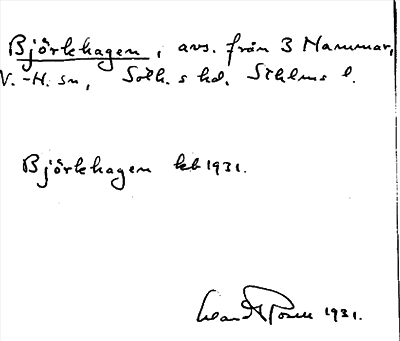 Björkhagen, avs. från 3 Hammar,
V.-H. sn, Soth. s hd. Sthlms l.
Björkhagen kb 1931.
1931.